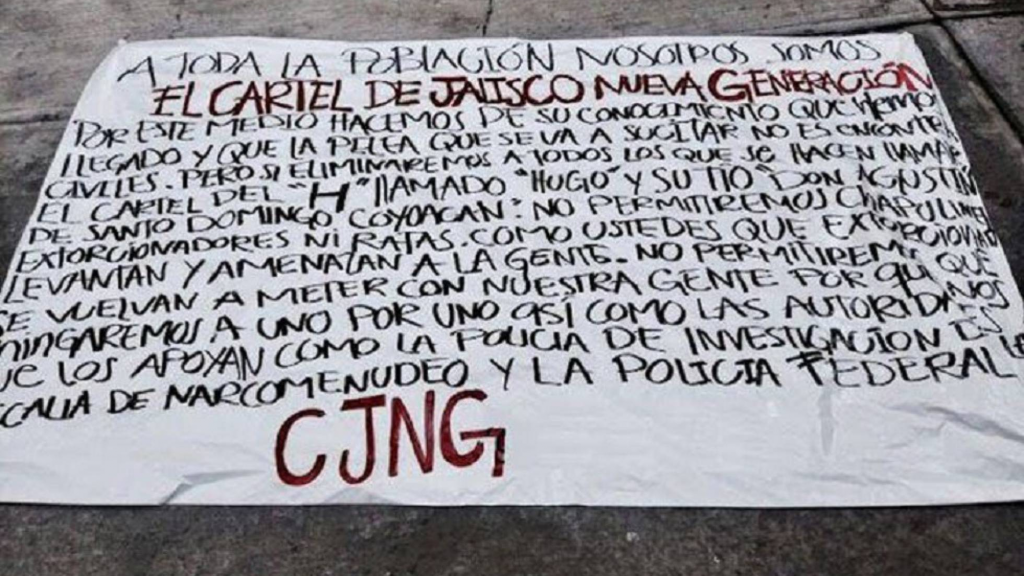 A TODA LA POBLACIÓN NOSOTROS SOMOS
EL CARTEL DE JALISCO NUEVA GENERACIÓN
POR ESTE MEDIO HACEMOS DE SU CONOCIMIENTO QUE HEMO
LLEGADO Y QUE LA PELEA QUE SE VA A SUCITAR NO ES ENCONTRA
CIVILES. PERO SI ELIMINAREMOS A TODOS LOS QUE SE HACEN LLAMAR
EL CARTEL DEL "H" LLAMADO "HUGO" Y SU TIO "DON AGUSTIN
DE SANTO DOMINGO COYOACAN: NO PERMITIREMOS CHAPULINES
EXTORCIONADORES NI RATAS. COMO USTEDES QUE EXTORCIONAN
LEVANTAN Y AMENAZAN A LA GENTE. NO PERMITIREM QUE
SE VUELVAN A METER CON NUESTRA GENTE POR QU NOS
CHINGAREMOS A UNO POR UNO ASÍ COMO LAS AUTORIDA
UE LOS APOYAN COMO LA POLICIA DE INVESTIGACION DE LA
CALIA DE NARCOMENUDEO Y LA POLICIA FEDERAL
CJNG